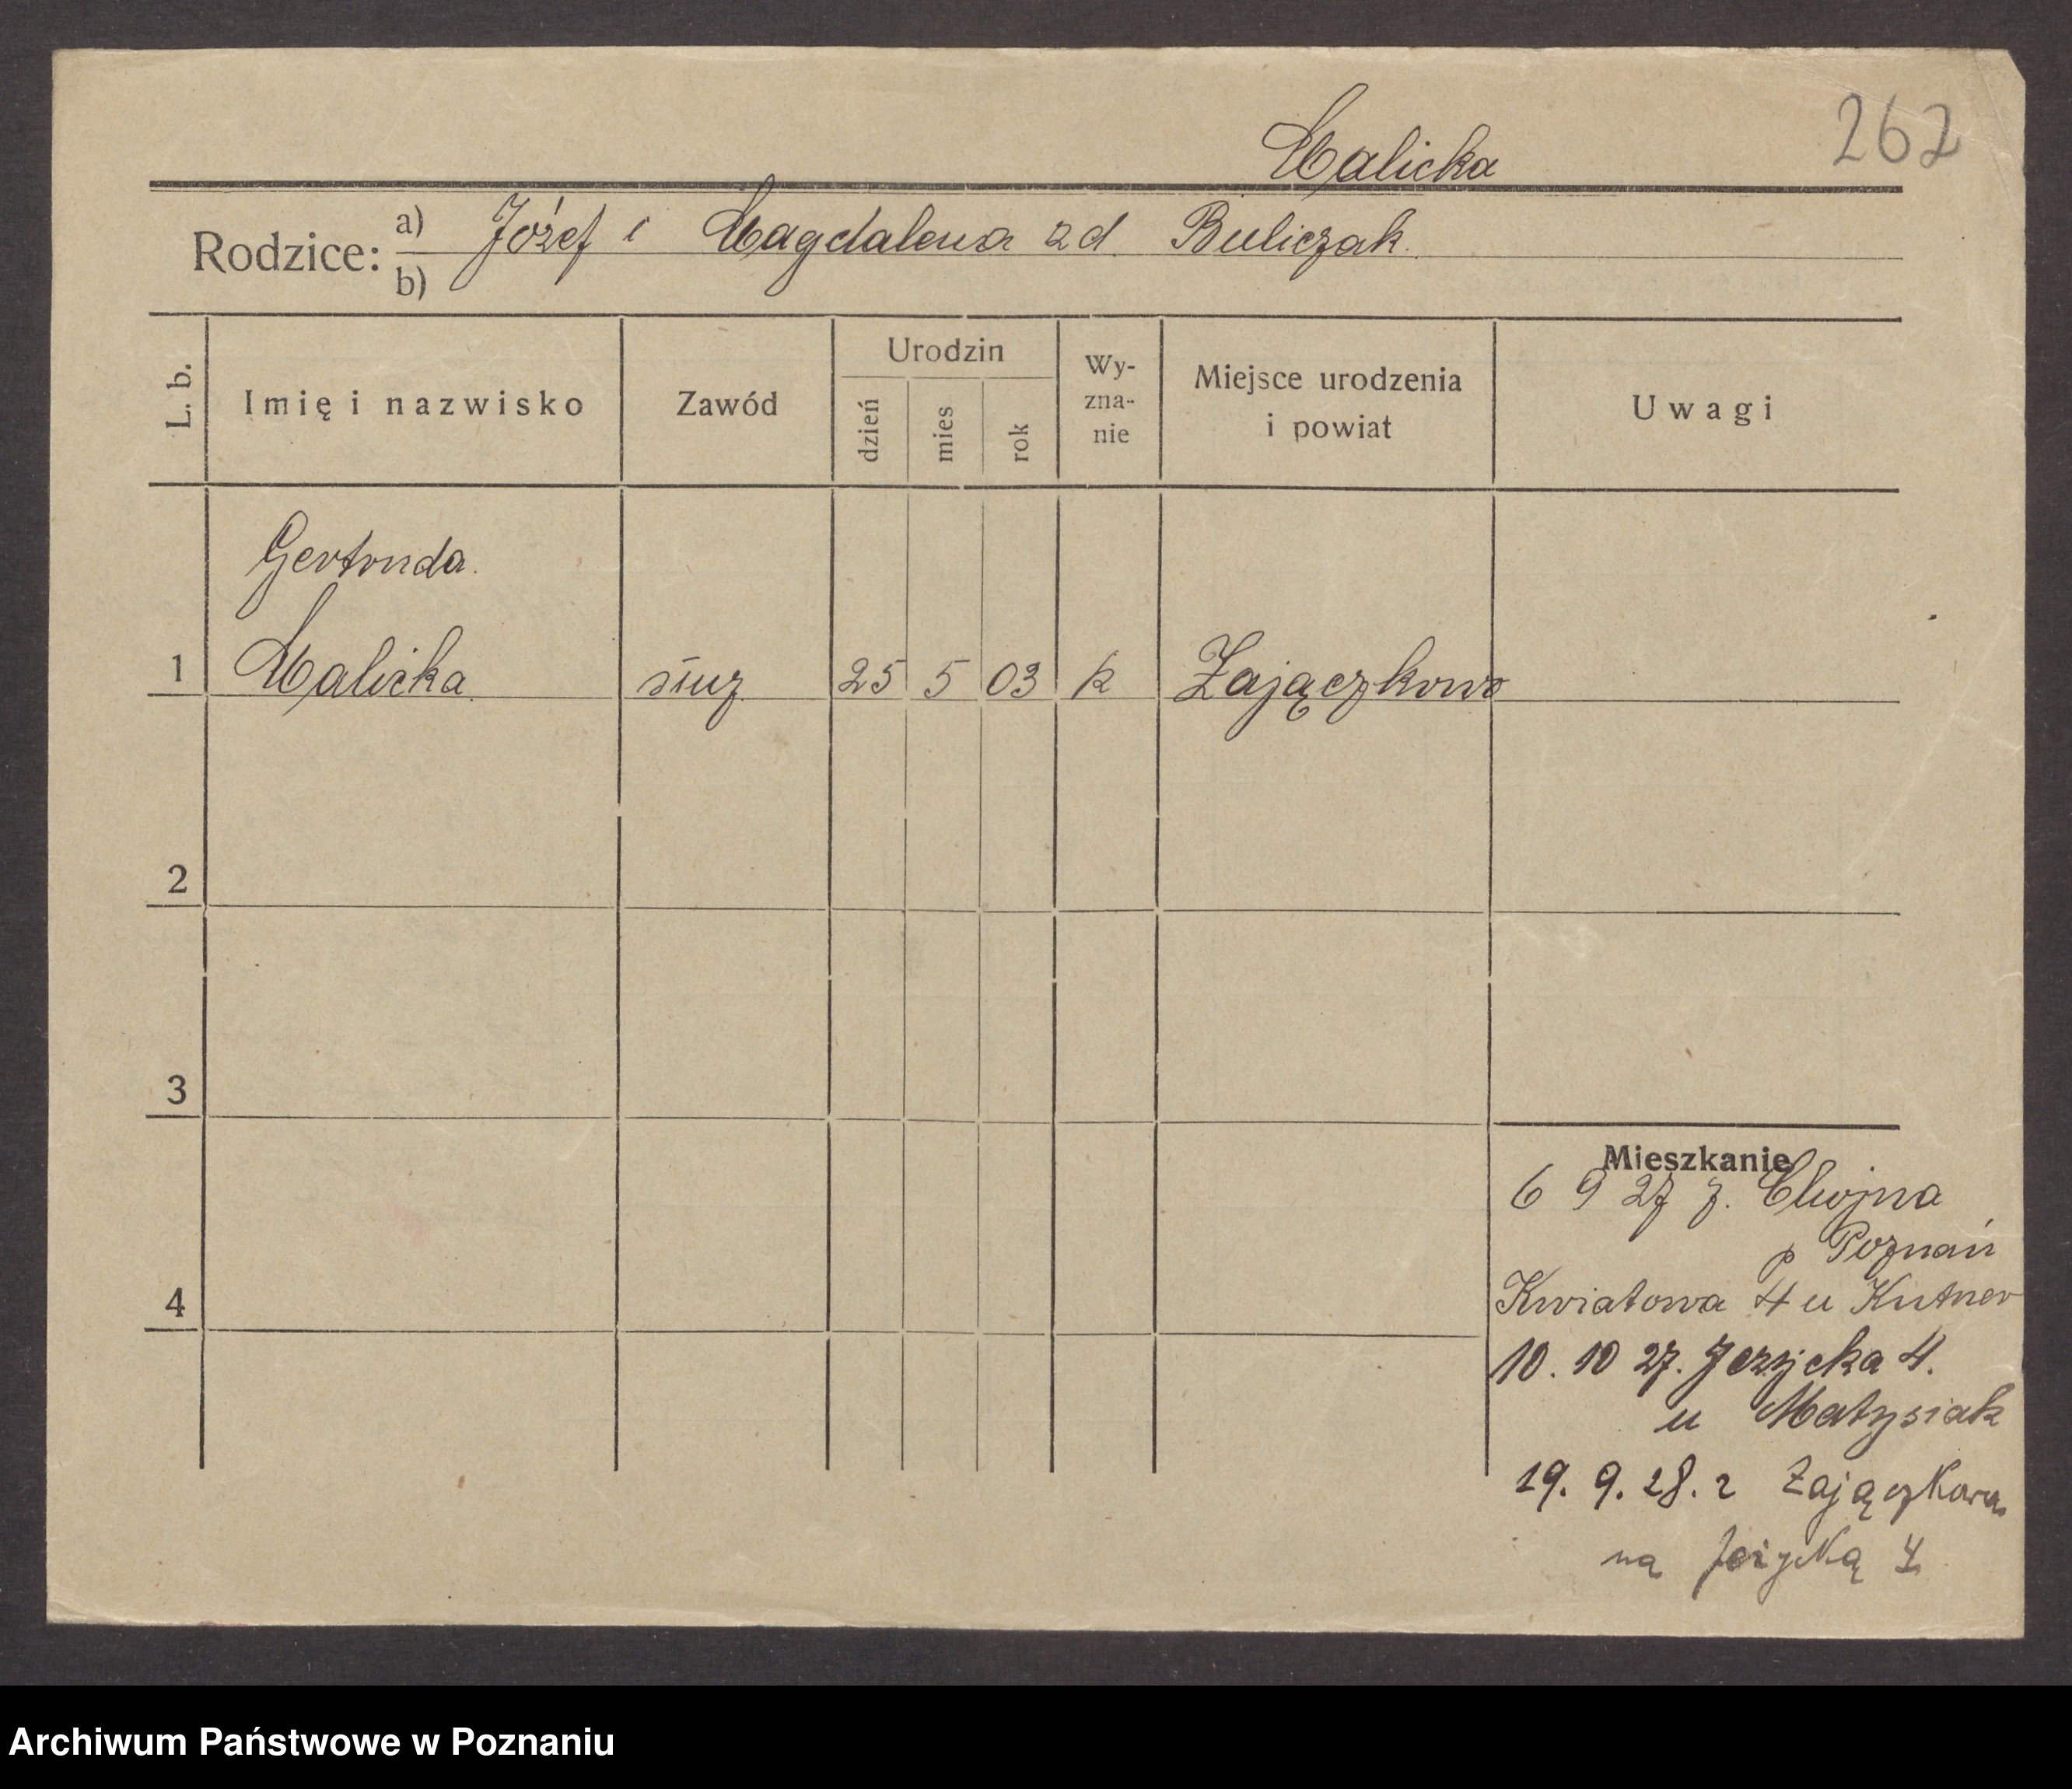 262
Malicka
Rodzice: a) Józef i Magdalena zd Buliczak.
b)
L. b. Imię i nazwisko Zawód Urodzin dzień mies rok Wy-zna-nie Miejsce urodzenia i powiat Uwagi
Gertruda.
1 Malicka służ 25 5 03 k Zajączkowo
2
3
Mieszkanie
6 9 27 z. Chojna
p Poznań
4 Kwiatowa 4 u Kutner
10. 10 27. Jeżycka 4.
u Matysiak
19. 9. 28. z Zajączkowa
na Jeżycką 4
Archiwum Państwowe w Poznaniu